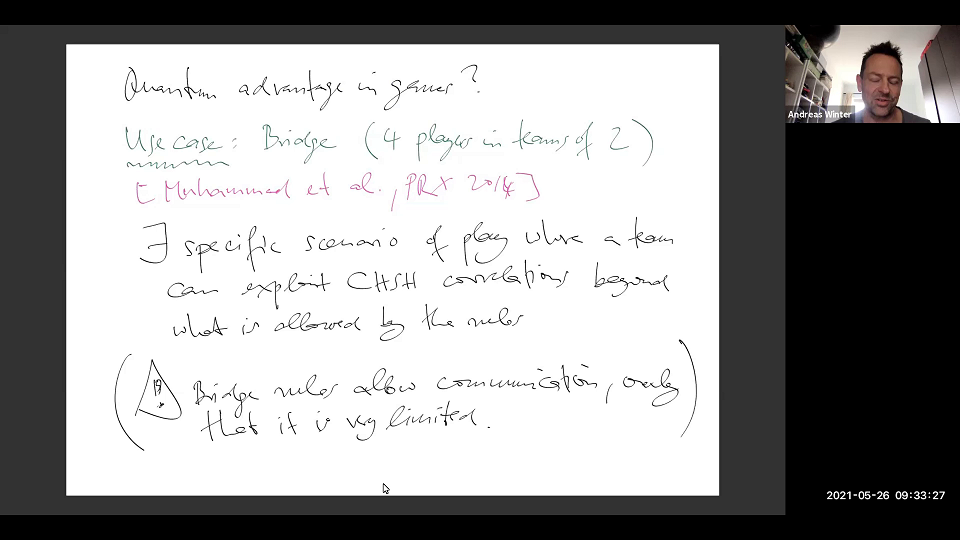 Quantum advantage in games?
Use case: Bridge (4 players in teams of 2)
[Muhammad et al., PRX 2014]
∃ specific scenario of play where a team
can exploit CHSH correlations beyond
what is allowed by the rules
(⚠ Bridge rules allow communication, only
that it is very limited.)
Andreas Winter
2021-05-26 09:33:27